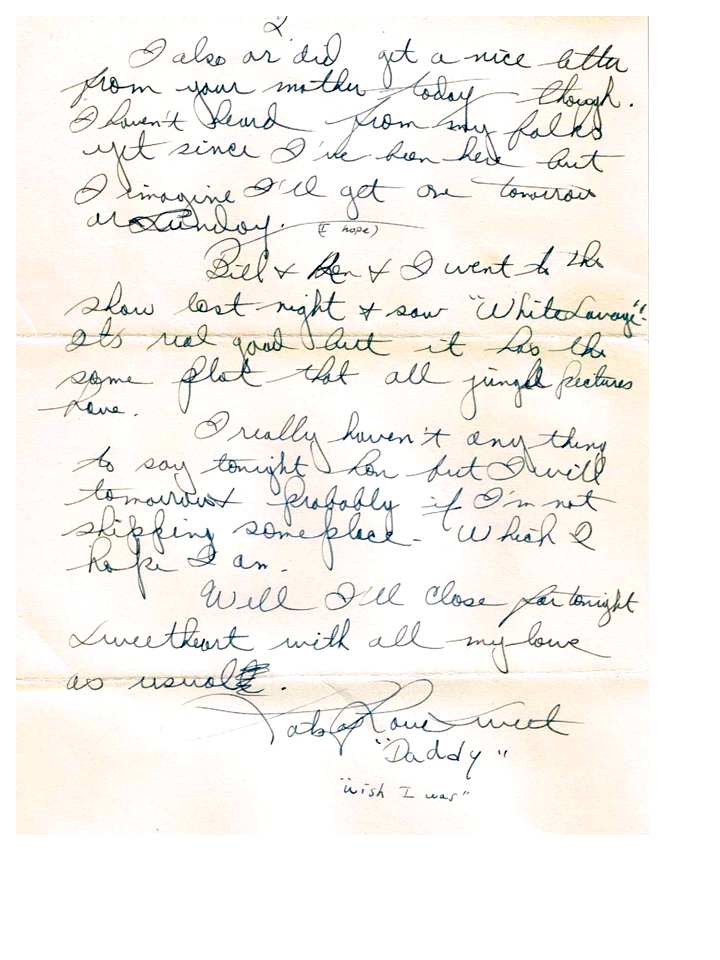 2
I also or did get a nice letter
from your mother today though.
I haven't heard from my folks
yet since I've been here but
I imagine I'll get one tomorrow
or Sunday. (I hope)
Bill & Ken & I went to the
show last night & saw "White Savage".
Its real good but it has the
same plot that all jungle pictures
have.
I really haven't anything
to say tonight hon but I will
tomorrow probably if I'm not
shipping someplace - Which I
hope I am.
Well I'll close for tonight
Sweetheart with all my love
as usual.
Lots of Love Sweet
"Daddy"
"wish I was"